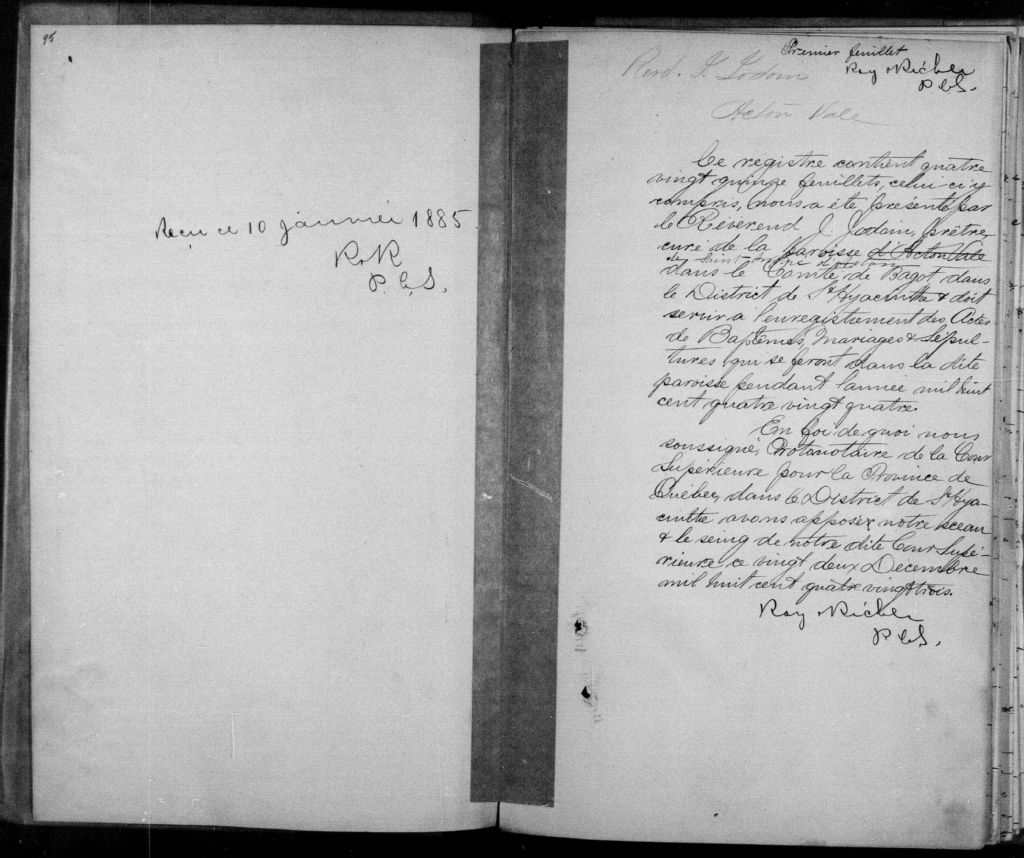 95
Recu ce 10 janvier 1885
R & R
P. C. S.
Premier feuillet
Roy & Richer
P. C. S.
Revd. J. Jodoin
Acton Vale
Ce registre contient quatre
vingt quinze feuillets, celui ci y
compris, nous a été présenté par
le Révérend J. Jodoin, prêtre
curé de la paroisse d'Acton Vale
de Saint-André d'Acton
dans le Comté de Bagot dans
le District de St Hyacinthe & doit
servir a l'enregistrement des Actes
de Baptêmes, Mariages & Sépul-
tures qui se feront dans la dite
paroisse pendant l'année mil huit
cent quatre vingt quatre.
En foi de quoi nous
soussigné, Protonotaire de la Cour
Supérieure pour la Province de
Québec, dans le District de St Hya-
cinthe avons apposé notre sceau
& le seing de notre dite Cour Supé-
rieure, ce vingt deux Decembre
mil huit cent quatre vingt trois.
Roy & Richer
P. C. S.